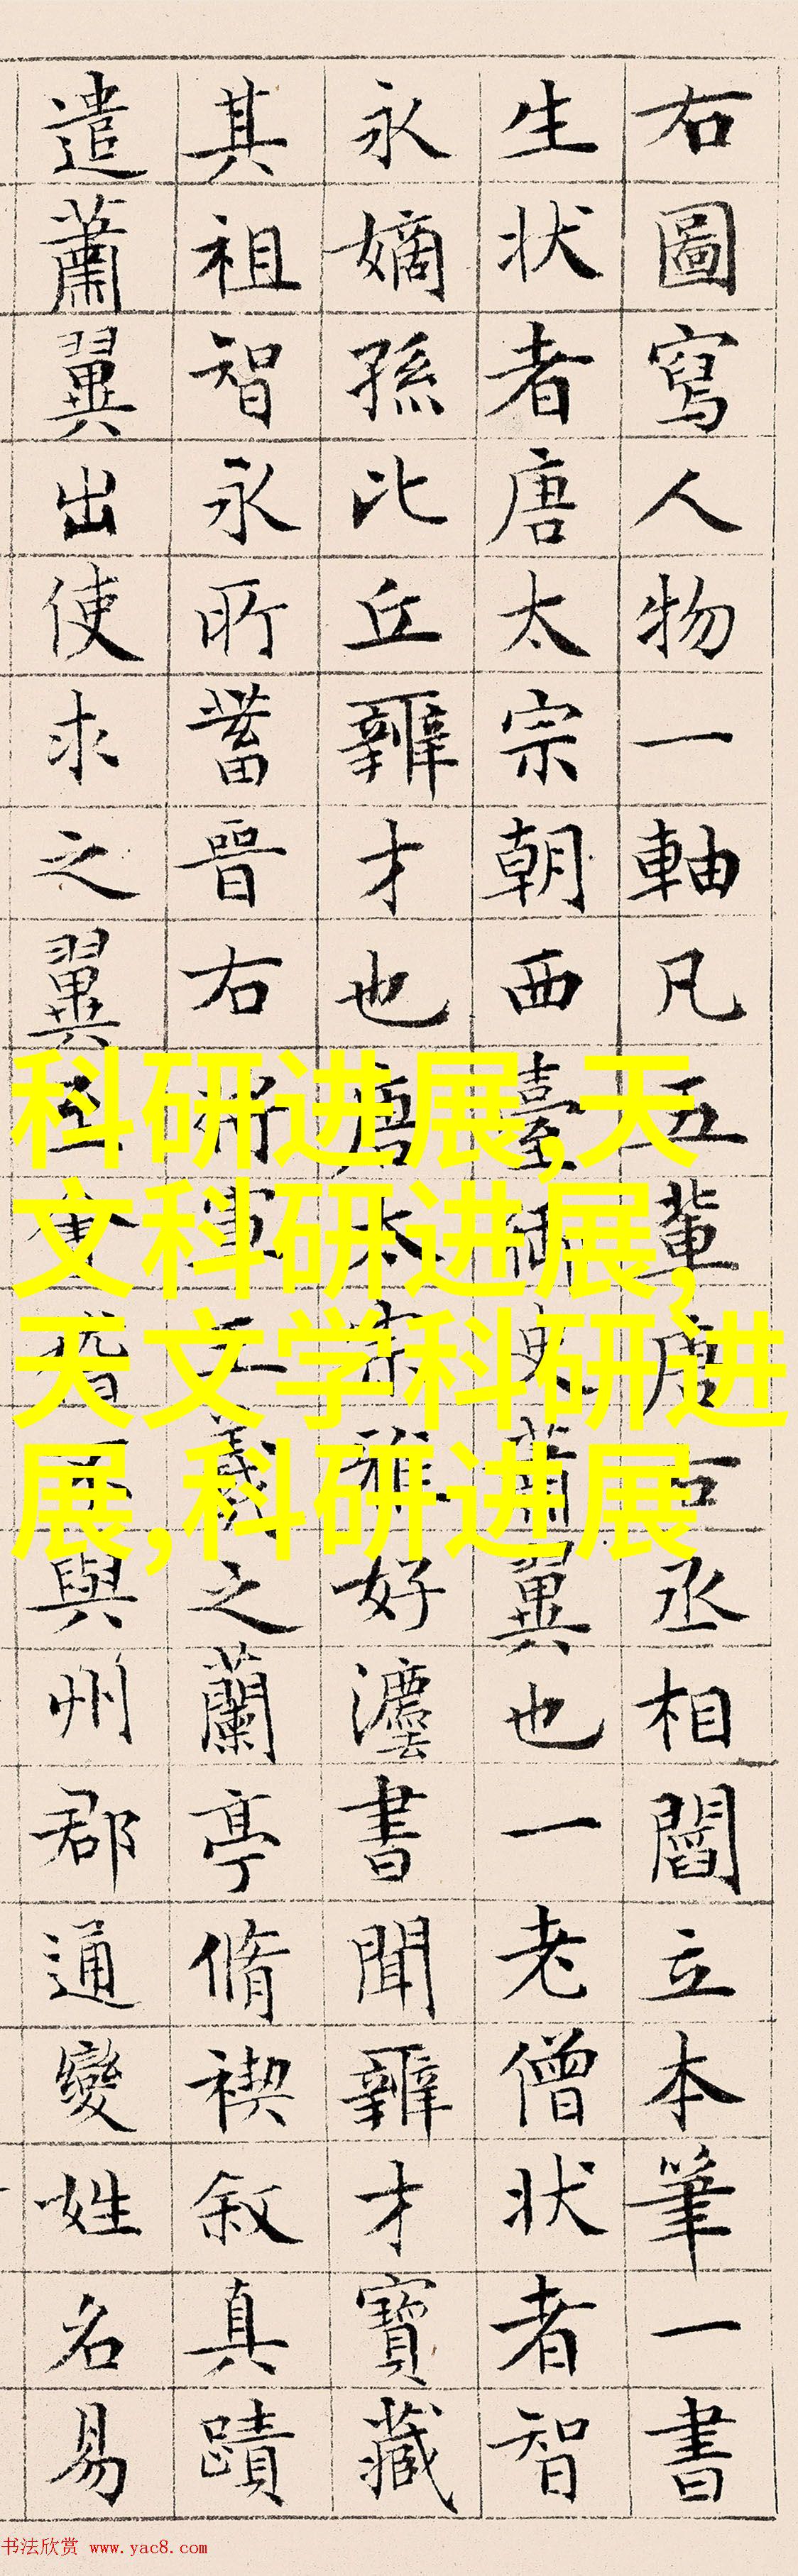 右圖寫人物一軸凡五輩唐右丞相閻立本筆一書
生状者唐太宗朝西臺御史蕭翼也一老僧状者智
永嫡孫比丘辯才也唐太宗雅好灋書聞辯才寶藏
其祖智永所蓄晉右将軍王羲之蘭亭脩禊叙真蹟
遣蕭翼出使求之翼至會稽不與州郡通變姓名易
科研进展,天
文科研进展,
天文学科研进
展,科研进展
书法欣赏 www.yac8.com